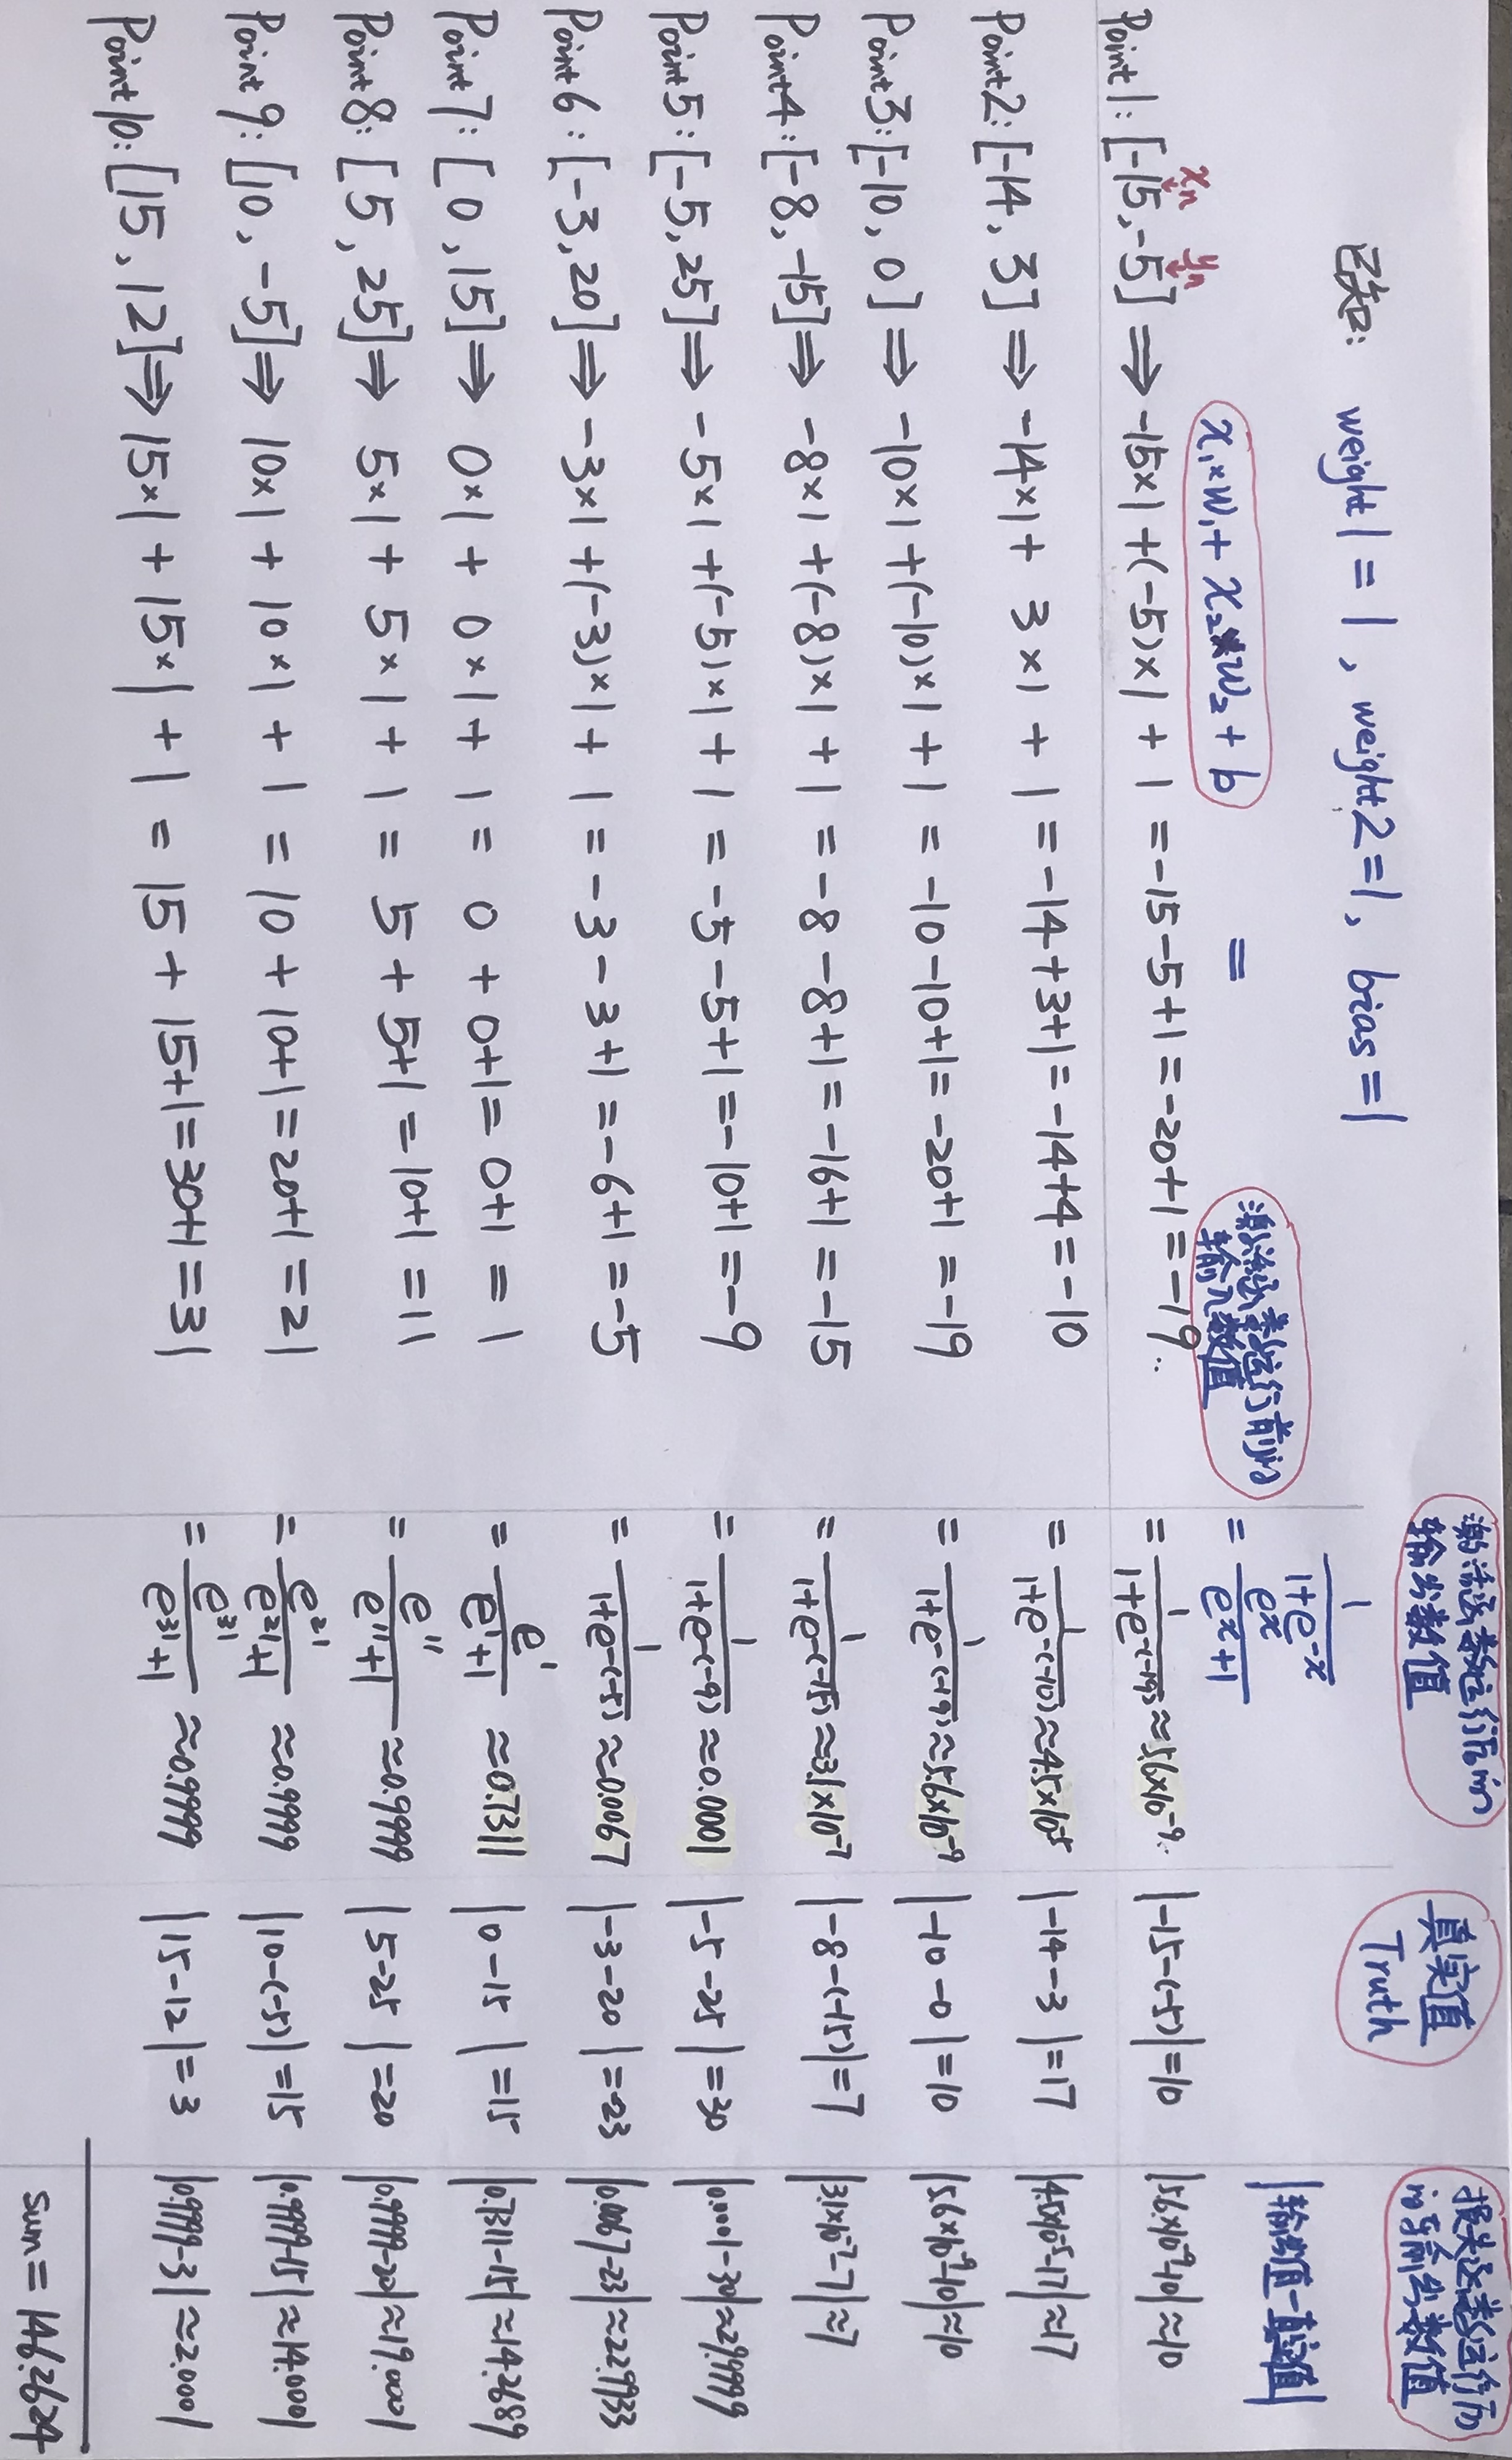 激活函数运行后的
输出数值
真实值
Truth
损失函数运行后
的输出数值
已知: weight1 = 1, weight2=1, bias=1
1/(1+e^-x)
|输出值-真实值|
x₁×w₁+ x₂×w₂+b =
激活函数运行前的
输入数值
= e^x/(e^x+1)
xn yn
Point1: [-15,-5] ⟹ -15×1 +(-5)×1 + 1 =-15-5+1=-20+1=-19.. = 1/(1+e^-(-19)) ≈5.6×10^-9 |-15-(-5)|=10 |5.6×10^-9-10|≈10
Point2: [-14, 3] ⟹ -14×1+ 3×1 + 1 =-14+3+1=-14+4=-10 = 1/(1+e^-(-10)) ≈4.5×10^-5 |-14-3|=17 |4.5×10^-5-17|≈17
Point3: [-10, 0] ⟹ -10×1+(-10)×1+1 = -10-10+1= -20+1 =-19 = 1/(1+e^-(-19)) ≈5.6×10^-9 |-10-0|=10 |5.6×10^-9-10|≈10
Point4: [-8, -15] ⟹ -8×1 +(-8)×1 + 1 = -8-8+1= -16+1 =-15 = 1/(1+e^-(-15)) ≈3.1×10^-7 |-8-(-15)|=7 |3.1×10^-7-7|≈7
Point5: [-5, 25] ⟹ -5×1 +(-5)×1 + 1 = -5-5+1=-10+1=-9 = 1/(1+e^-(-9)) ≈0.0001 |-5-25|=30 |0.0001-30|≈29.9999
Point6: [-3,20] ⟹ -3×1 +(-3)×1+ 1 = -3-3+1 =-6+1 =-5 = 1/(1+e^-(-5)) ≈0.0067 |-3-20|=23 |0.0067-23|≈22.9933
Point7: [0,15] ⟹ 0×1 + 0×1+ 1 = 0 + 0+1= 0+1 = 1 = e^1/(e^1+1) ≈0.7311 |0-15|=15 |0.7311-15|≈14.2689
Point8: [5,25] ⟹ 5×1+ 5×1 + 1 = 5 + 5+1 =10+1 =11 = e^11/(e^11+1) ≈0.9999 |5-25|=20 |0.9999-20|≈19.0001
Point9: [10,-5] ⟹ 10×1 + 10×1 + 1 = 10 + 10+1=20+1 =21 = e^21/(e^21+1) ≈0.9999 |10-(-5)|=15 |0.9999-15|≈14.0001
Point10: [15,12] ⟹ 15×1+15×1+1 = 15 + 15+1=30+1=31 = e^31/(e^31+1) ≈0.9999 |15-12|=3 |0.9999-3|≈2.0001
sum= 146.2624